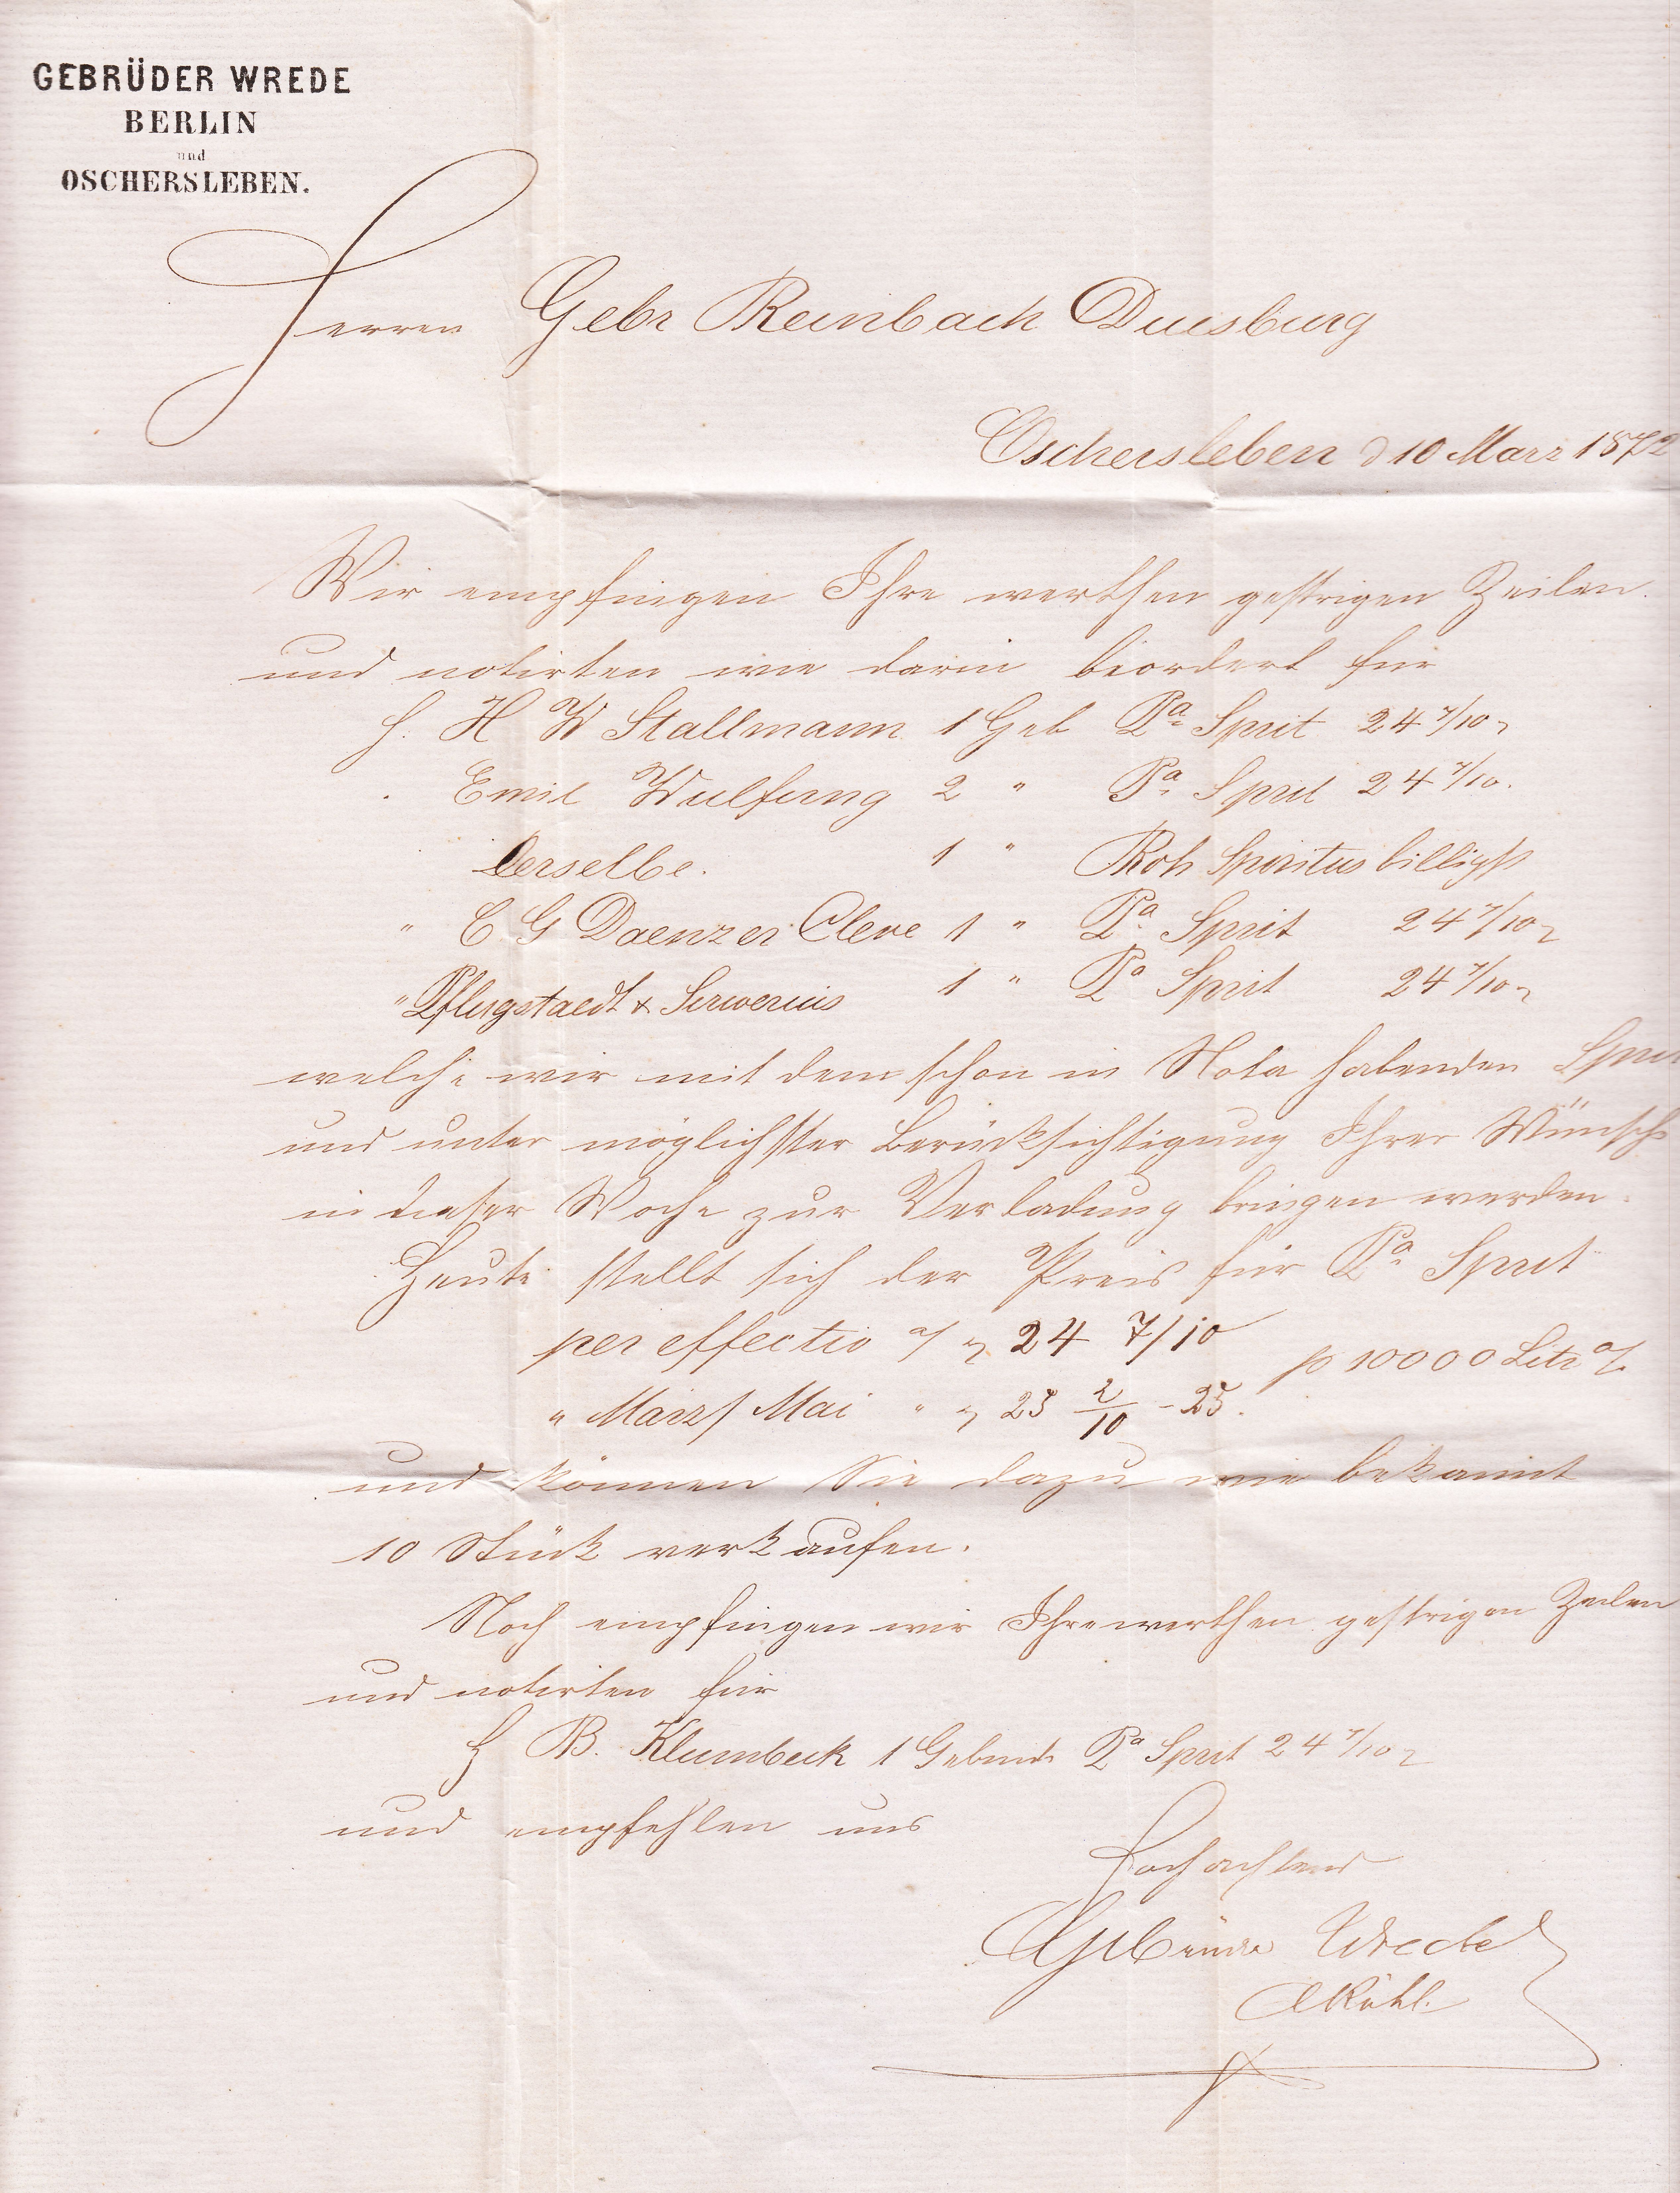 GEBRÜDER WREDE
BERLIN
und
OSCHERSLEBEN.
Herren Gebr Reinbach Duisburg
Oschersleben d 10 März 1872
Wir empfingen Ihre werthen gestrigen Zeilen
und notirten wie darin beordert für
H. H W Stallmann 1 Geb Pa Sprit 24 7/10
Emil Wulfing 2 " Pa Sprit 24 7/10.
Derselbe. 1 " Roh Spiritus billigst
" C G Daenzer Cleve 1 " Pa Sprit 24 7/10
" Pflugstaedt & Serverius 1 " Pa Sprit 24 7/10
welche wir mit dem schon in Nota habenden Sprit
und unter möglichster Berücksichtigung Ihrer Wünsche
in dieser Woche zur Verladung bringen werden.
Heute stellt sich der Preis für Pa Sprit
per effectiv a/ 24 7/10
p 10000 Litr %
" März/Mai " 25 2/10 - 25.
und können Sie dazu wie bekannt
10 Stück verkaufen.
Noch empfingen wir Ihre werthen gestrigen Zeilen
und notirten für
H B. Klumbeck 1 Gebinde Pa Sprit 24 7/10
und empfehlen uns
Hochachtend
Gebrüder Wrede